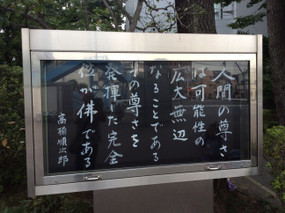 人間の尊さ
は可能性の
広大無辺
なることである
その尊さを
発揮した完全
位が佛である
高楠順次郎